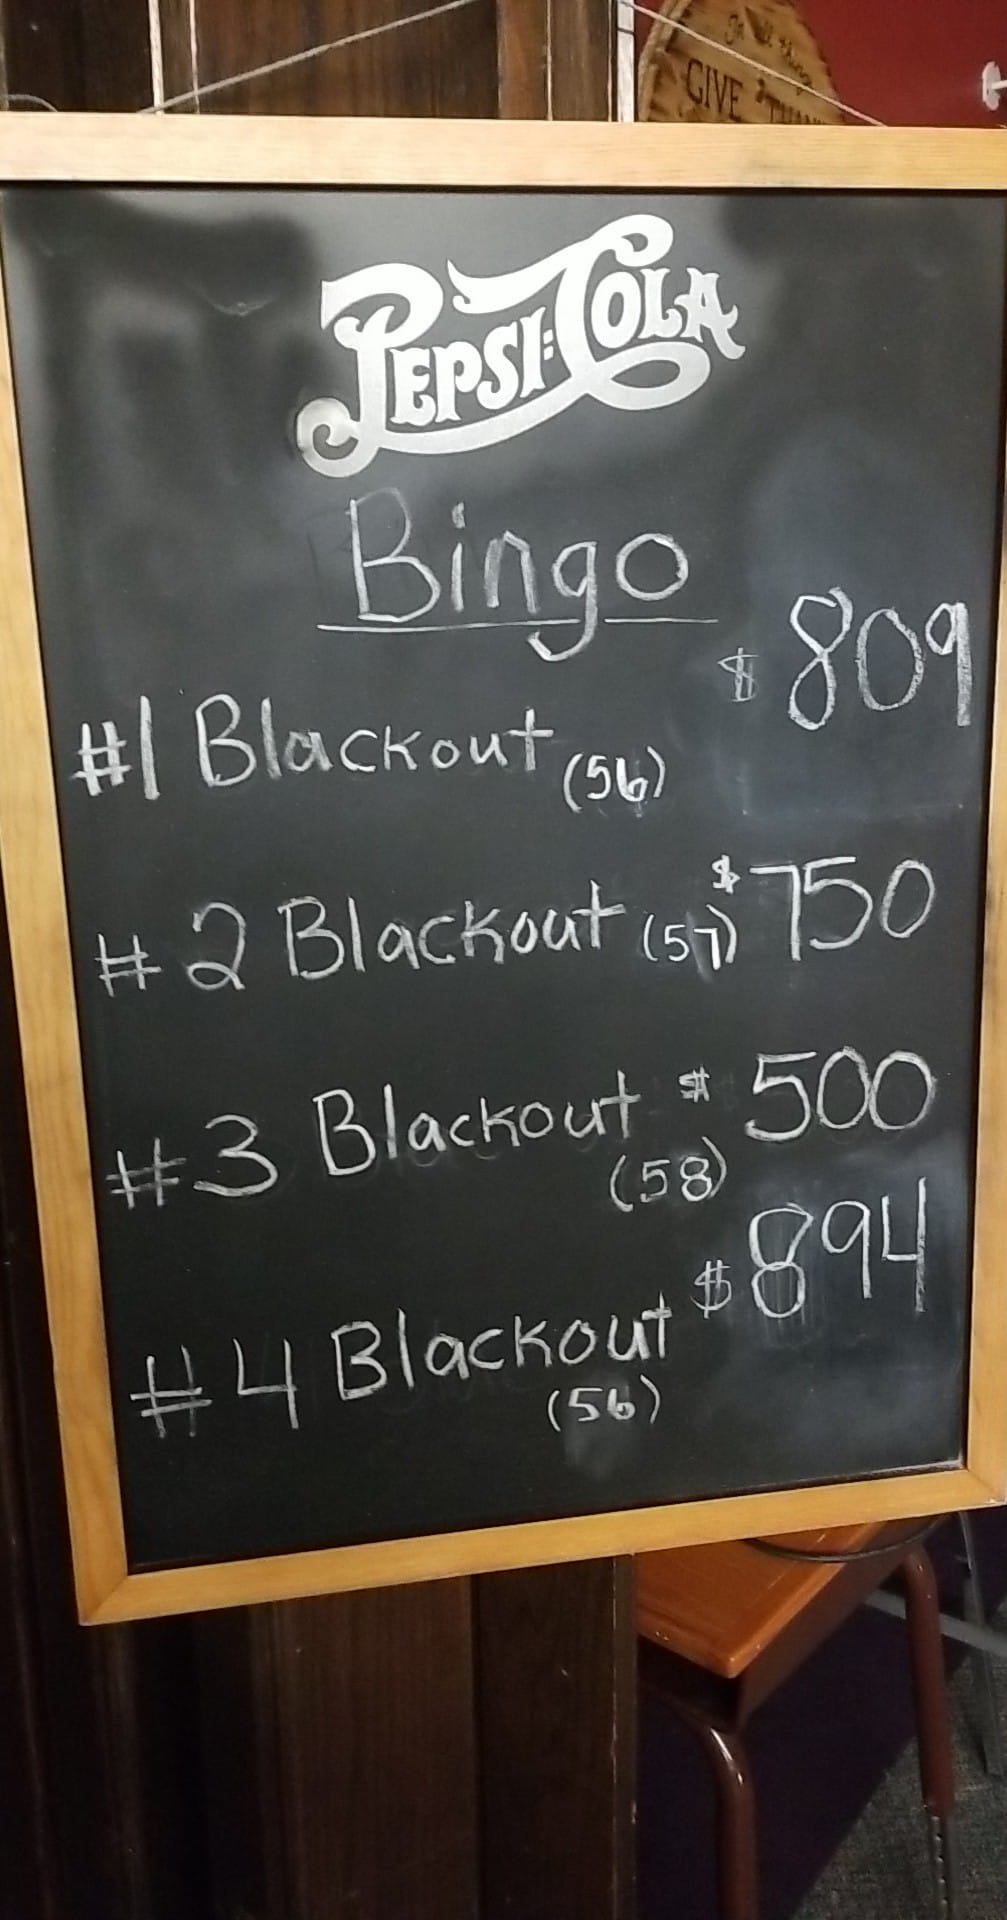 In all things
GIVE THAN
PEPSI:COLA
Bingo
#1 Blackout (56) $809
#2 Blackout (57) $750
#3 Blackout (58) $500
#4 Blackout (56) $894